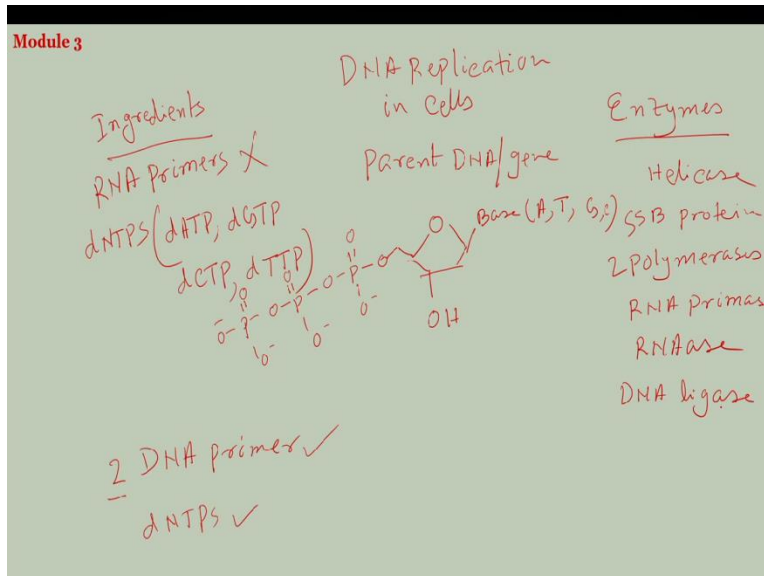 Module 3
DNA Replication
in cells
Parent DNA/gene
Ingredients
RNA Primers X
dNTPS (dATP, dGTP
dCTP, dTTP)
Base (A, T, G, C)
O
O
O
O
-O-P-O-P-O-P-O
O-
O-
O-
OH
Enzymes
Helicase
SSB protein
2 Polymerases
RNA Primas
RNAase
DNA ligase
2 DNA primer ✓
dNTPS ✓